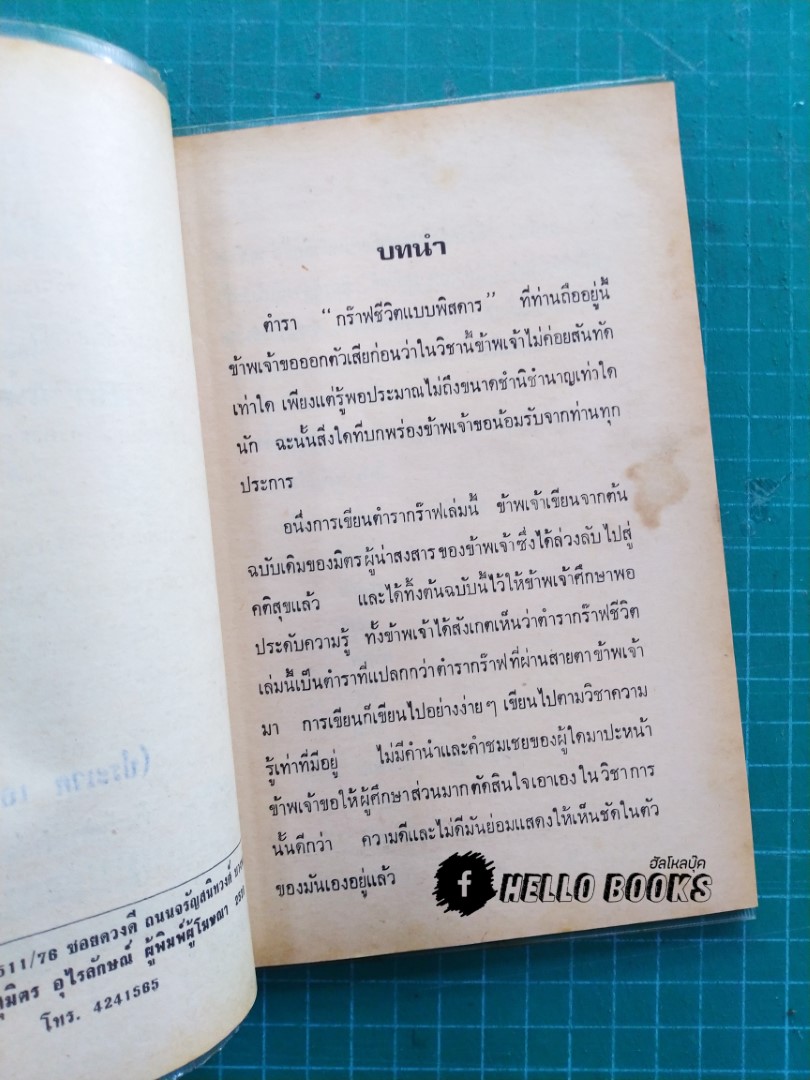 บทนำ
ตำรา "กร๊าฟชีวิตแบบพิสดาร" ที่ท่านถืออยู่นี้
ข้าพเจ้าขอออกตัวเสียก่อนว่าในวิชานี้ข้าพเจ้าไม่ค่อยสันทัด
เท่าใด เพียงแต่รู้พอประมาณไม่ถึงขนาดชำนิชำนาญเท่าใด
นัก ฉะนั้นสิ่งใดที่บกพร่องข้าพเจ้าขอน้อมรับจากท่านทุก
ประการ
อนึ่งการเขียนตำรากร๊าฟเล่มนี้ ข้าพเจ้าเขียนจากต้น
ฉบับเดิมของมิตรผู้น่าสงสารของข้าพเจ้าซึ่งได้ล่วงลับไปสู่
คติสุขแล้ว และได้ทิ้งต้นฉบับนี้ไว้ให้ข้าพเจ้าศึกษาพอ
ประดับความรู้ ทั้งข้าพเจ้าได้สังเกตเห็นว่าตำรากร๊าฟชีวิต
เล่มนี้เป็นตำราที่แปลกกว่าตำรากร๊าฟที่ผ่านสายตาข้าพเจ้า
มา การเขียนก็เขียนไปอย่างง่ายๆ เขียนไปตามวิชาความ
รู้เท่าที่มีอยู่ ไม่มีคำนำและคำชมเชยของผู้ใดมาปะหน้า
ข้าพเจ้าขอให้ผู้ศึกษาส่วนมากตัดสินใจเอาเองในวิชาการ
นั้นดีกว่า ความดีและไม่ดีมันย่อมแสดงให้เห็นชัดในตัว
ของมันเองอยู่แล้ว
ฮัลโหลบุ๊ค
f HELLO BOOKS
511/76 ซอยดวงดี ถนนจรัญสนิทวงศ์
อุไรลักษณ์ ผู้พิมพ์ผู้โฆษณา
โทร. 4241565